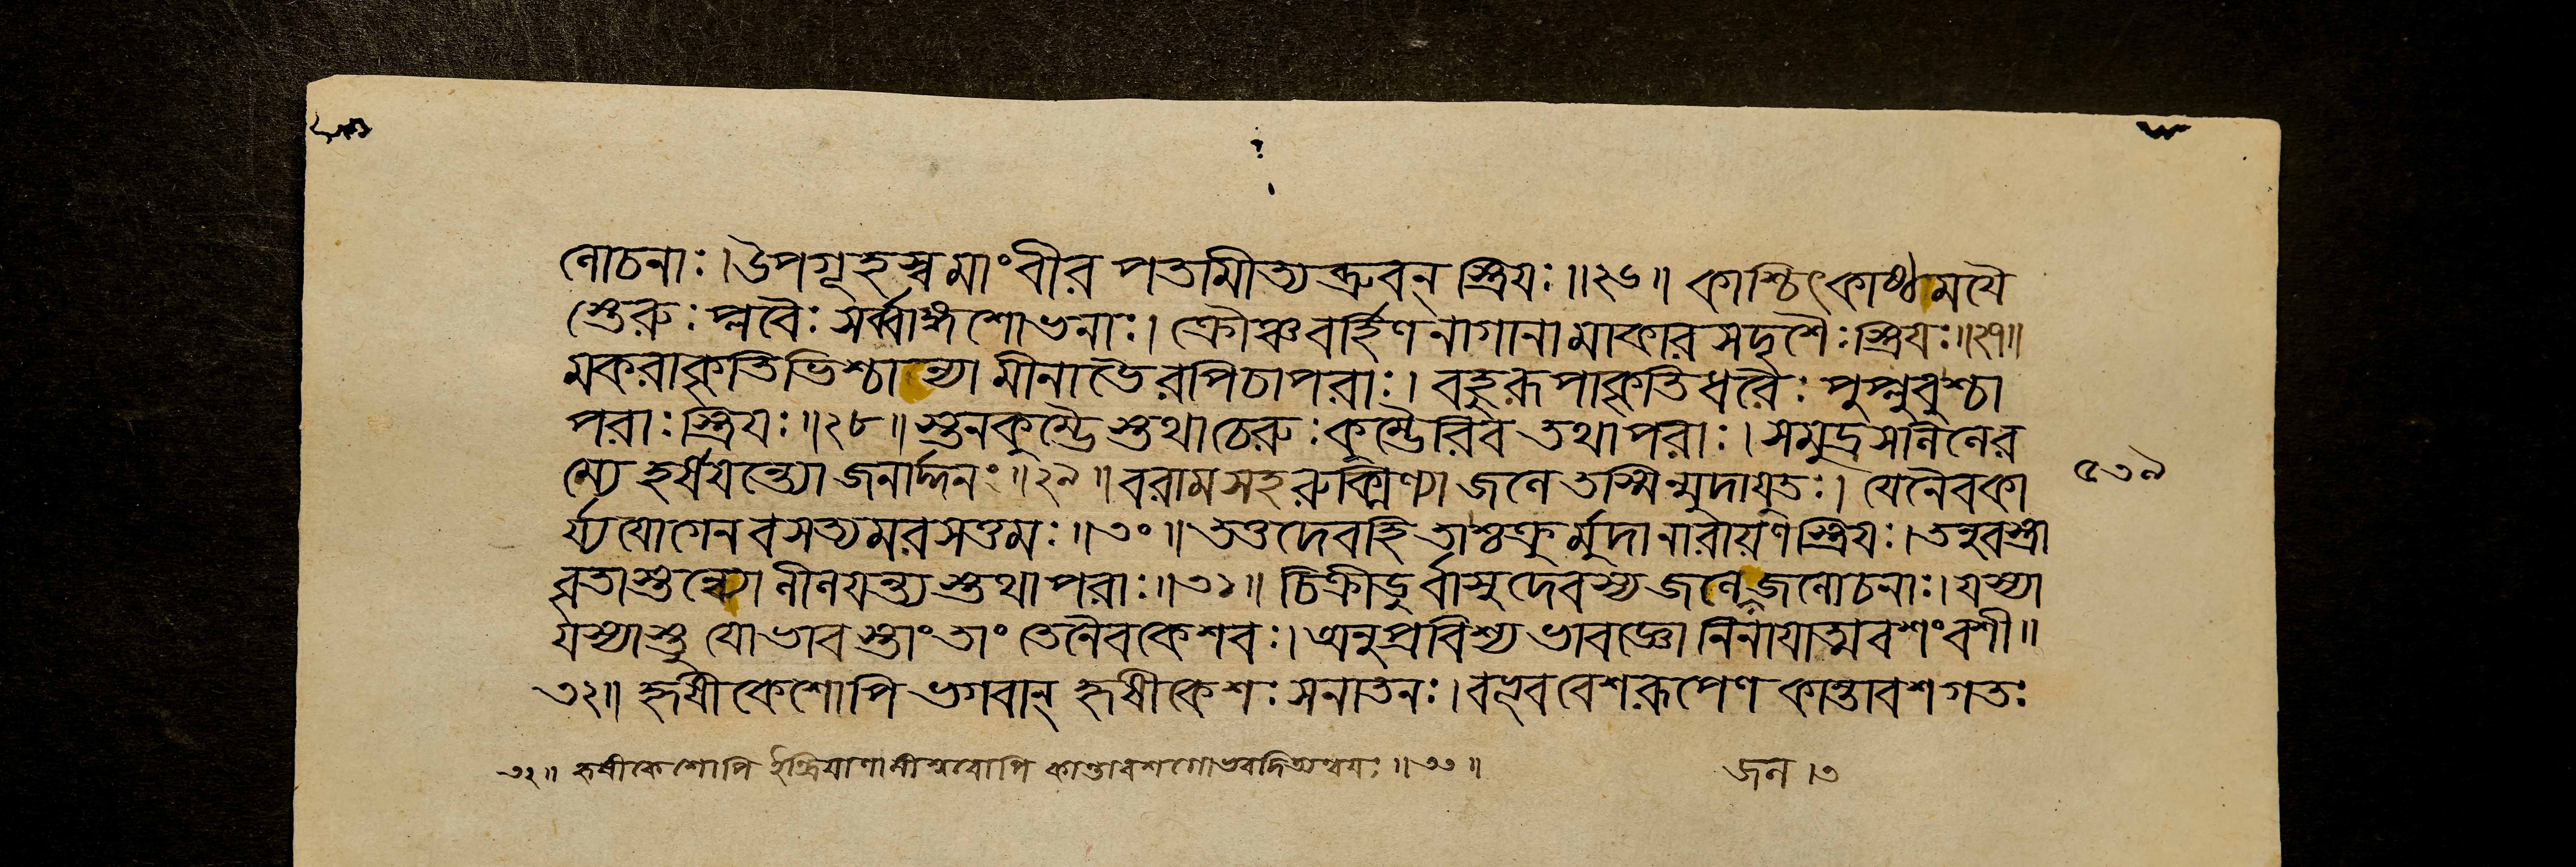 লোচনাঃ। উপগূহস্ব মাং বীর পতামীত্যব্রুবন্ স্ত্রিয়ঃ॥২৬॥ কাশ্চিৎকাষ্ঠময়ৈ
স্তেরুঃ প্লবৈঃ সর্ব্বাঙ্গশোভনাঃ। ক্রৌঞ্চবর্হিণনাগানামাকারসদৃশৈঃ স্ত্রিয়ঃ॥২৭॥
মকরাকৃতিভিশ্চান্যা মীনাভৈরপিচাপরাঃ। বহুরূপাকৃতিধরৈঃ পুপ্লুবুশ্চা
পরাঃ স্ত্রিয়ঃ॥২৮॥ স্তনকুম্ভৈস্তথা তেরুঃ কুম্ভৈরিব তথাপরাঃ। সমুদ্রসলিলে র
ম্যে হর্ষয়ন্ত্যো জনার্দ্দনং॥২৯॥ ররাম সহ রুক্মিণ্যা জলে তস্মিন্মুদা যুতঃ। যেনৈব কা
র্য্যযোগেন বসত্যমরসত্তমঃ॥৩০॥ তত্তদেবহি তাশ্চক্রুর্মুদা নারায়ণস্ত্রিয়ঃ। তনুবস্ত্রা
বৃতাস্তন্ব্যো লীলয়ন্ত্যস্তথাপরাঃ॥৩১॥ চিক্রীডুর্বাসুদেবস্য জলে জলজলোচনাঃ। যস্যা
যস্যাস্তু যো ভাবস্তাং তাং তেনৈব কেশবঃ। অনুপ্রবিশ্য ভাবজ্ঞো নিনায়াত্মবশং বশী॥
৩২॥ হৃষীকেশোপি ভগবান্ হৃষীকেশঃ সনাতনঃ। বভূব বেশরূপেণ কান্তাবশগতঃ
৫৩৯
৩২॥ হৃষীকেশোপি ইন্দ্রিয়াণামীশ্বরোপি কান্তাবশগোভবদিত্যন্বয়ঃ॥৩৩॥
জল। ৩